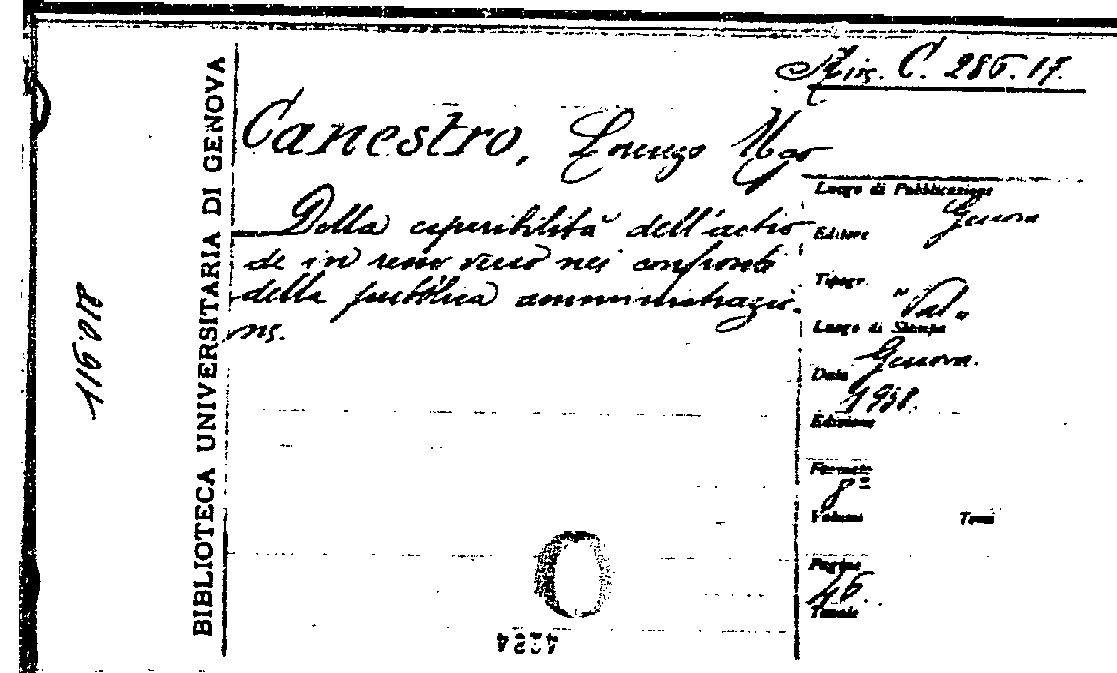 Mis. C. 286.17.
Canestro, Lorenzo Ugo
Luogo di Pubblicazione
Genova
Della esperibilità dell'actio
Editore
de in rem verso nei confronti
Tipogr.
"Pal"
della pubblica amministrazio-
Luogo di Stampa
ne.
Genova.
Data
Edizione
Formato
8°
Volumi Tomi
Pagine
46.
Tavole
BIBLIOTECA UNIVERSITARIA DI GENOVA
116.012